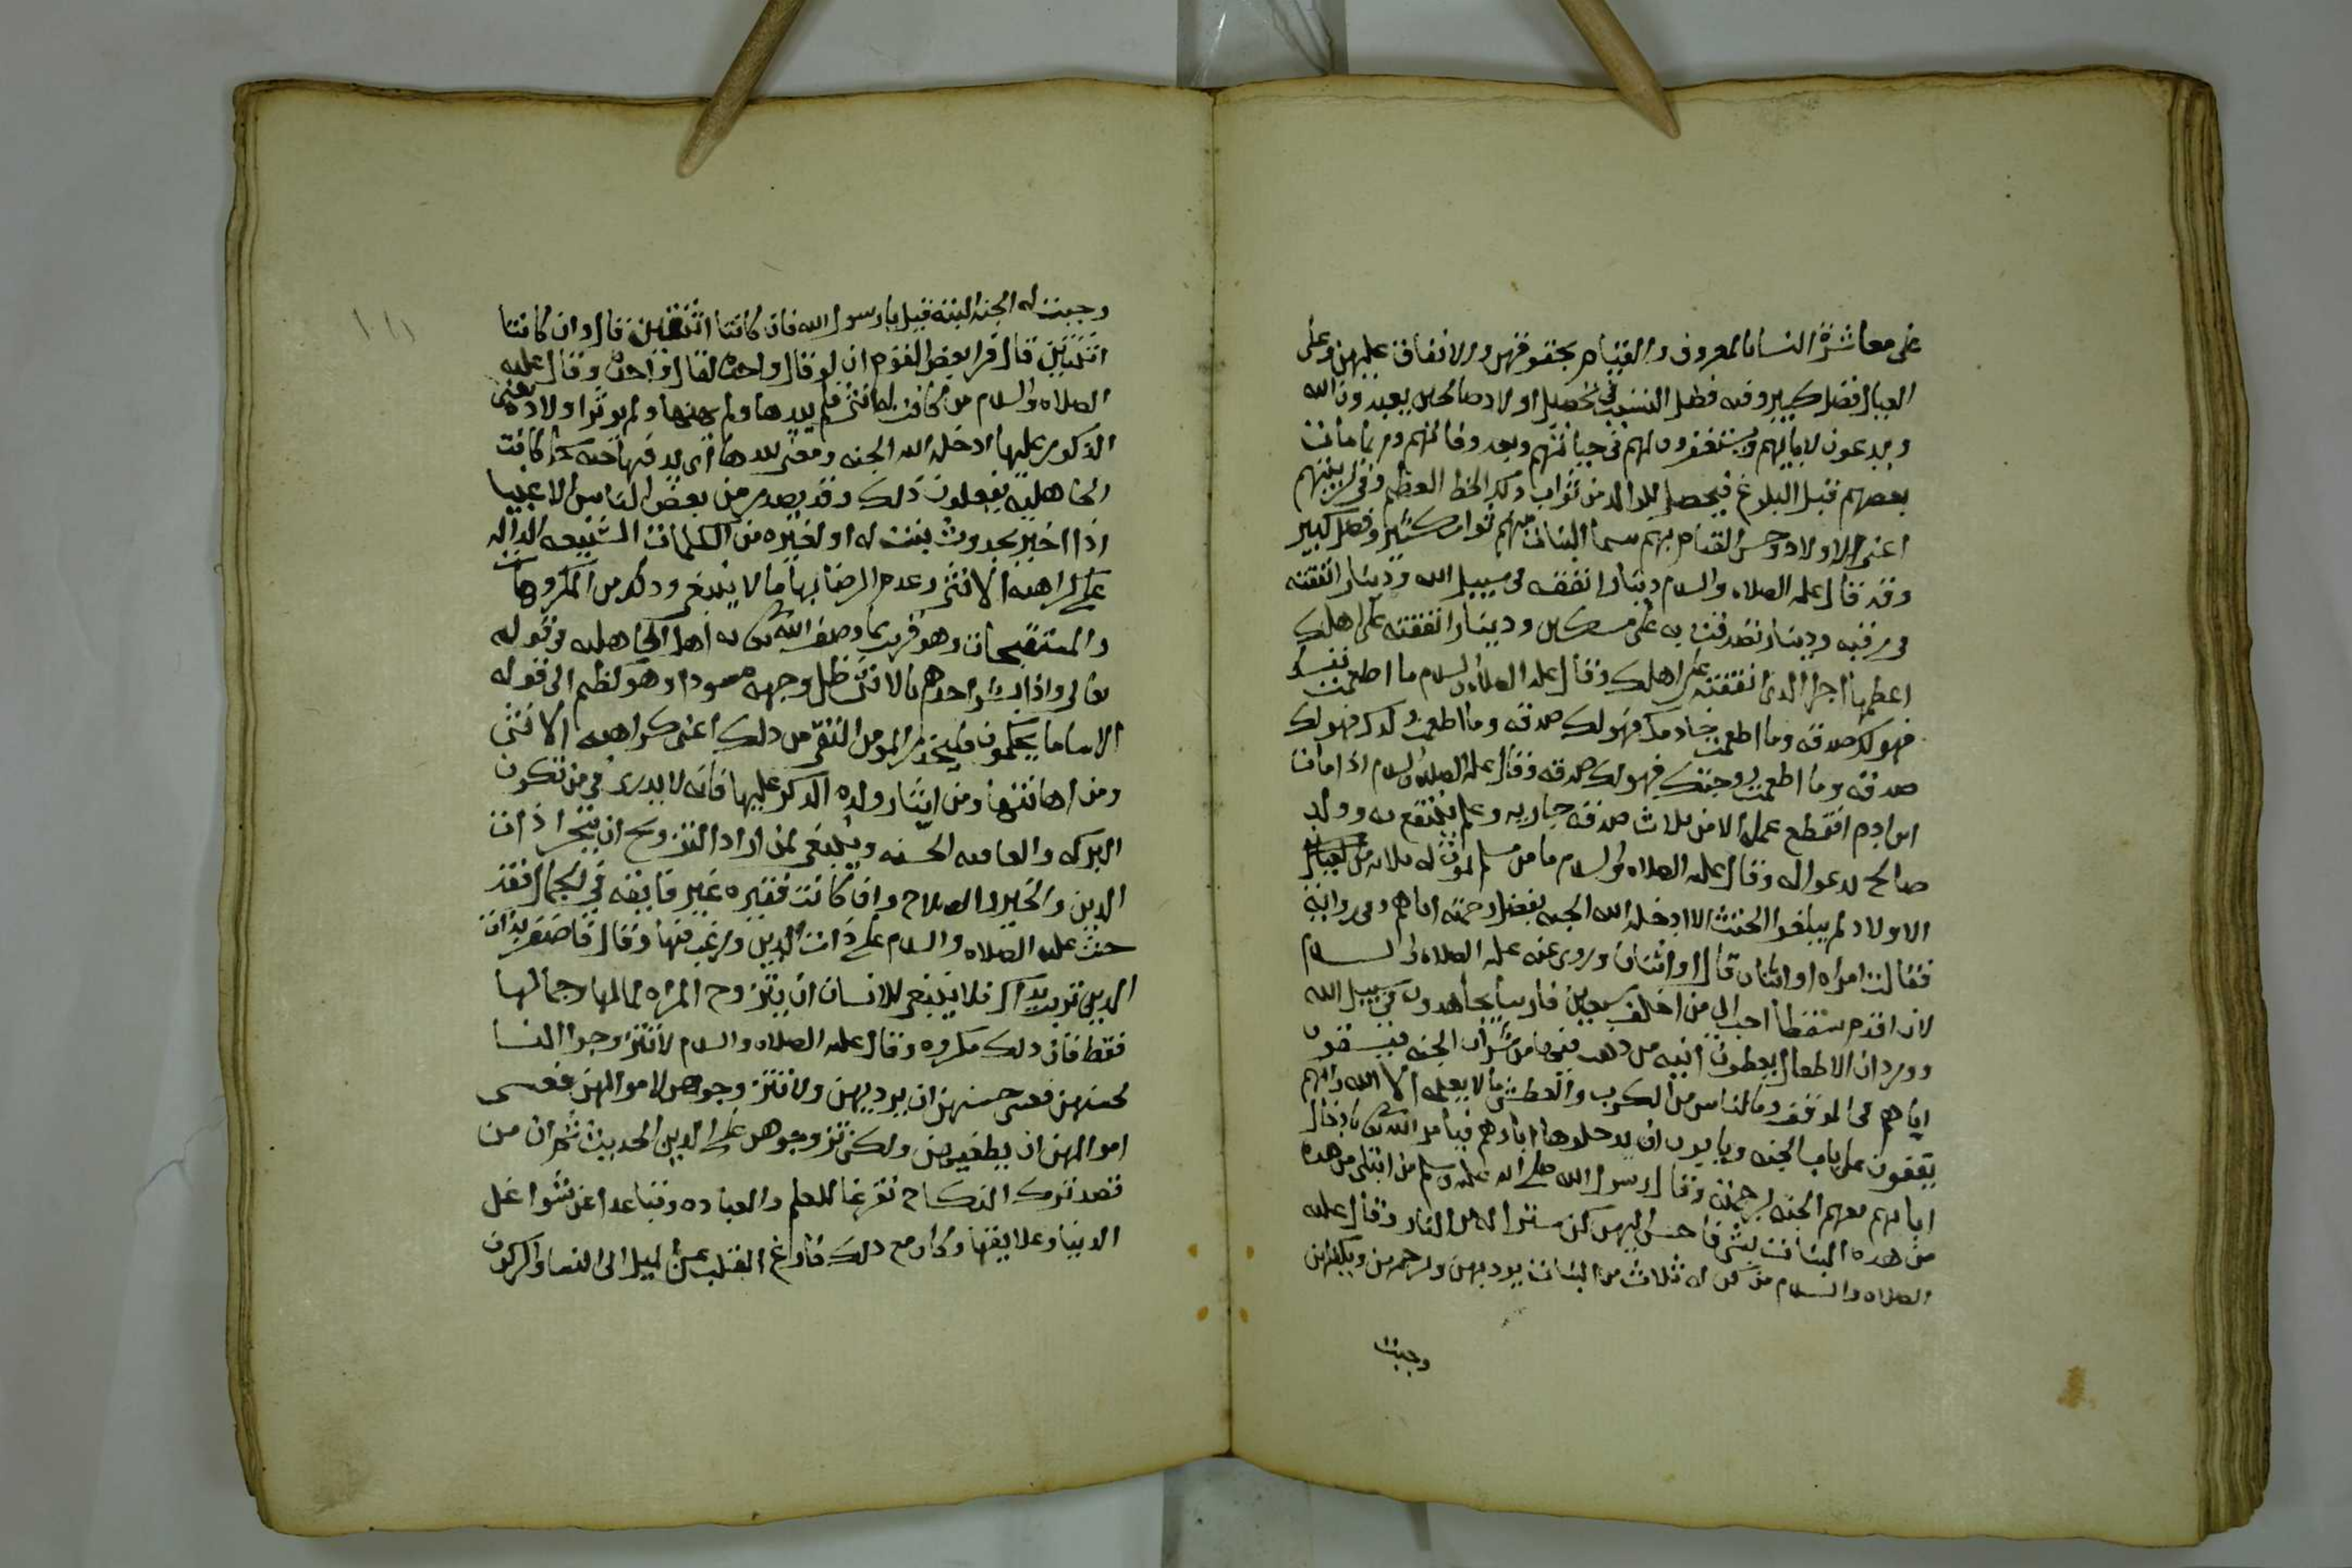 على معاشرة النسا بالمعروف والقيام بحقوقهن والانفاق عليهن وعلى
العيال فضل كبير وفيه فضل التسبب في تحصيل اولاد صالحين يعبدون الله
ويدعون لابايهم ويستغفرون لهم في حياتهم وبعد وفاتهم وربما مات
بعضهم قبل البلوغ فيحصل للوالد من ثواب ذلك الحظ العظيم وفي تربيتهم
اعني الاولاد وحسن القيام بهم سيما البنات منهم ثواب كثير وفضل كبير
وقد قال عليه الصلاه والسلام دينارا انفقته في سبيل الله ودينار انفقته
في رقبه ودينار تصدقت به على مسكين ودينارا انفقته على اهلك
اعظمها اجرا الذي انفقته على اهلك وقال عليه الصلاه والسلام ما اطعمت نفسك
فهو لك صدقه وما اطعمت خادمك فهو لك صدقه وما اطعمت ولدك فهو لك
صدقه وما اطعمت زوجتك فهو لك صدقه وقال عليه الصلاه والسلام اذا مات
ابن ادم انقطع عمله الا من ثلاث صدقه جاريه وعلم ينتفع به وولد
صالح يدعوا له وقال عليه الصلاه والسلام ما من مسلم يموت له ثلاثه من
الاولاد لم يبلغوا الحنث الا ادخله الله الجنه بفضل رحمته اياهم وفي رواية
فقالت امراه او اثنان قال او اثنان وروي عنه عليه الصلاه والسلام
لان اقدم سقطا احب الي من اخلف سبعين فارسا يجاهدون في سبيل الله
وورد ان الاطفال يعطون انيه من ذهب فيها من شراب الجنه فيسقون
اباهم في الموقف وبالناس من الكرب والعطش ما لا يعلمه الا الله وانهم
يقفون على باب الجنه ويابون ان يدخلوها اباوهم فيامر الله تعالى بادخال
ابايهم معهم الجنه برحمته وقال رسول الله صلى الله عليه وسلم من ابتلى من هذه
من هذه البنات بشي فاحسن اليهن كن سترا له من النار وقال عليه
الصلاه والسلام من كن له ثلاث من البنات يودبهن ويرحمهن ويكفلهن
وجبت
وجبت له الجنه البته قيل يا رسول الله فان كانتا اثنتين قال وان كانتا
اثنتين قال فرا بعض القوم ان لو قال واحدة لقال واحدة وقال عليه
الصلاه والسلام من كانت له انثى فلم يدها ولم يهنها ولم يوثر اولاده يعني
الذكور عليها ادخله الله الجنه ومعنى يدها اي يدفنها حيه كما كانت
الجاهلية يفعلون ذلك وقد يصدر من بعض الناس الاغبيا
اذا اخبر بحدوث بنت له او لغيره من الكلمات الشنيعه الداله
على كراهية الانثى وعدم الرضا بها ما لا ينبغي وذلك من المكروهات
والمستقبحات وهو قريب مما وصف الله تعالى به اهل الجاهليه في قوله
تعالى واذا بشر احدهم بالانثى ظل وجهه مسودا وهو كظيم الى قوله
الا ساما يحكمون فليحذر المومن التقي من ذلك اعني كراهيه الانثى
ومن اهانتها ومن ايثار ولده الذكر عليها فانه لا يدرى في من تكون
البركه والعاقبه الحسنه وينبغي لمن اراد التزويج ان يتحرا ذات
الدين والخير والصلاح وان كانت فقيره غير فايقه في الجمال فقد
حث عليه الصلاه والسلام على ذات الدين ورغب فيها وقال فاضفر بذات
الدين تربت يداك فلا ينبغي للانسان ان يتزوج المراه لمالها وجمالها
فقط فان ذلك مكروه وقال عليه الصلاه والسلام لا تتزوجوا النسا
لحسنهن فعسى حسنهن ان يرديهن ولا تتزوجوهن لاموالهن فعسى
اموالهن ان يطغيهن ولكن تزوجوهن على الدين الحديث ثم ان من
قصد ترك النكاح تفرغا للعلم والعباده وتباعدا عن شواغل
الدنيا وعلايقها وكان مع ذلك فارغ القلب عن الميل الى النسا والركون